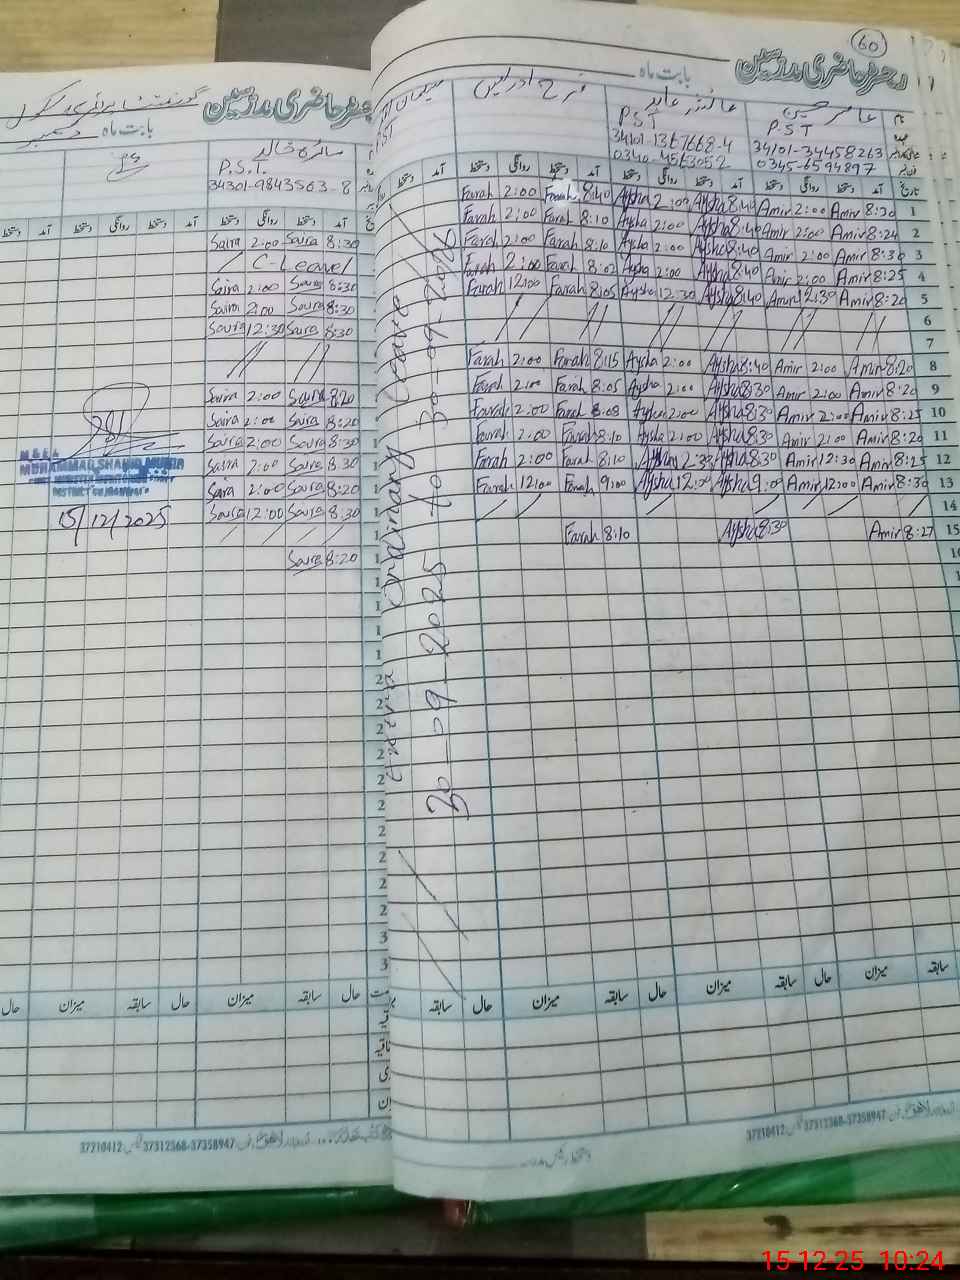 60
رجسٹر حاضری مدرسین
بابت ماہ
عامر حسین
P.ST
34101-34458263
0345-6594897
عائشہ عابد
P.ST
34101-1367668-4
0340-4563052
فرح ادریس
آمد دستخط روانگی دستخط آمد دستخط روانگی دستخط آمد دستخط روانگی دستخط آمد دستخط
Farah 2:00 Farah 8:40 Aysha 2:00 Aysha 8:40 Amir 2:00 Amir 8:20 1
Farah 2:00 Farah 8:10 Aysha 2:00 Aysha 8:40 Amir 2:00 Amir 8:24 2
Farah 2:00 Farah 8:10 Aysha 2:00 Aysha 8:40 Amir 2:00 Amir 8:30 3
Farah 2:00 Farah 8:02 Aysha 2:00 Aysha 8:40 Amir 2:00 Amir 8:25 4
Farah 12:00 Farah 8:05 Aysha 12:30 Aysha 8:40 Amir 12:30 Amir 8:20 5
6
7
Farah 2:00 Farah 8:15 Aysha 2:00 Aysha 8:40 Amir 2:00 Amir 8:20 8
Farah 2:00 Farah 8:05 Aysha 2:00 Aysha 8:30 Amir 2:00 Amir 8:20 9
Farah 2:00 Farah 8:08 Aysha 2:00 Aysha 8:30 Amir 2:00 Amir 8:25 10
Farah 2:00 Farah 8:10 Aysha 2:00 Aysha 8:30 Amir 2:00 Amir 8:20 11
Farah 2:00 Farah 8:10 Aysha 2:30 Aysha 8:30 Amir 12:30 Amir 8:25 12
Farah 12:00 Farah 9:00 Aysha 12:00 Aysha 9:00 Amir 12:00 Amir 8:30 13
14
Farah 8:10 Aysha 8:30 Amir 8:27 15
Ordinary Leave
30-09-2025 to 30-09-2026
سابقہ میزان حال سابقہ میزان حال سابقہ میزان حال سابقہ
37210412 37312368-37358947
رجسٹر حاضری مدرسین
بابت ماہ دسمبر
سائرہ خالد
P.S.T.
34301-9843563-8
آمد دستخط روانگی دستخط آمد دستخط روانگی دستخط آمد دستخط
Saira 2:00 Saira 8:30
C-Leave
Saira 2:00 Saira 8:30
Saira 2:00 Saira 8:30
Saira 12:30 Saira 8:30
Saira 2:00 Saira 8:20
Saira 2:00 Saira 8:20
Saira 2:00 Saira 8:30
Saira 2:00 Saira 8:30
Saira 2:00 Saira 8:20
Saira 12:00 Saira 8:30
Saira 8:20
15/12/2025
حال میزان سابقہ حال میزان سابقہ حال
37210412 37312368-37358947
15-12-25 10:24